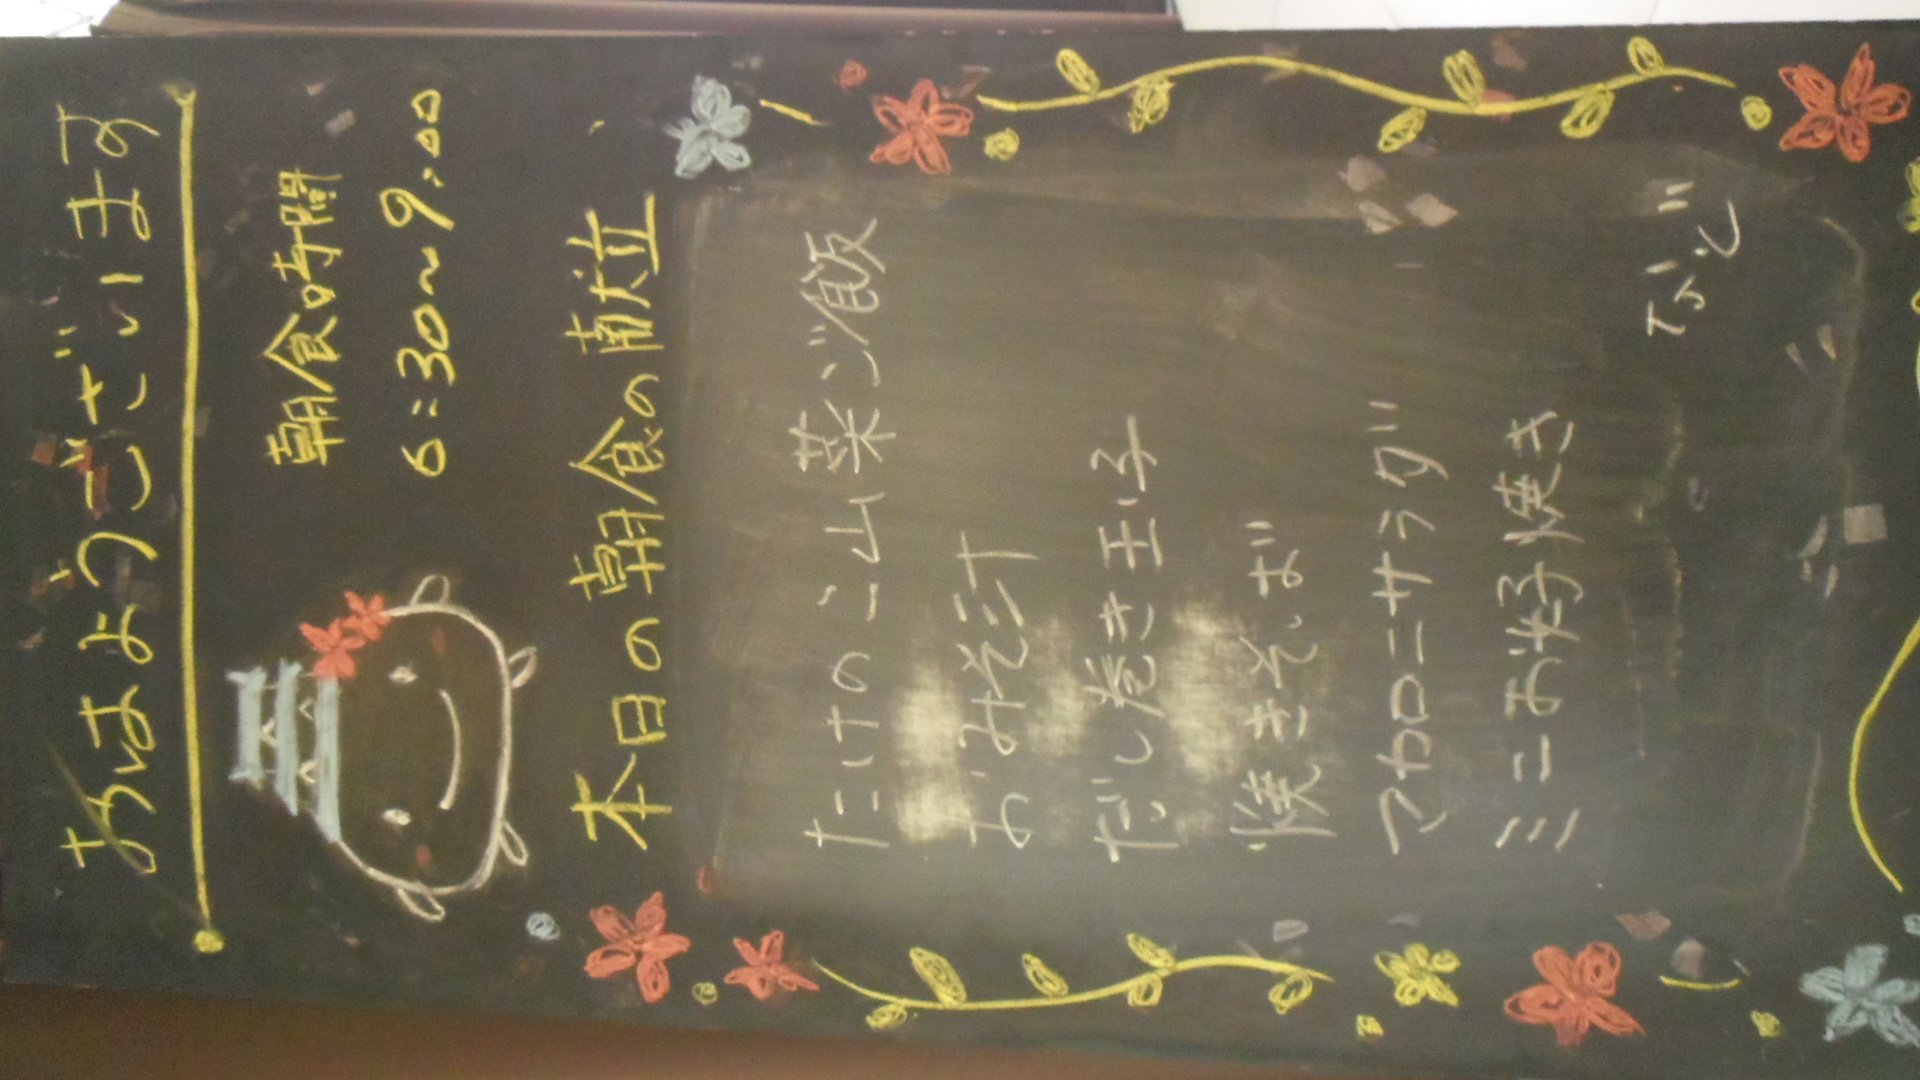 おはようございます
朝食時間
6:30~9:00
本日の朝食の献立
たけのこ山菜ご飯
おみそ汁
だし巻き玉子
焼きそば
マカロニサラダ
ミニお好み焼き
などなど